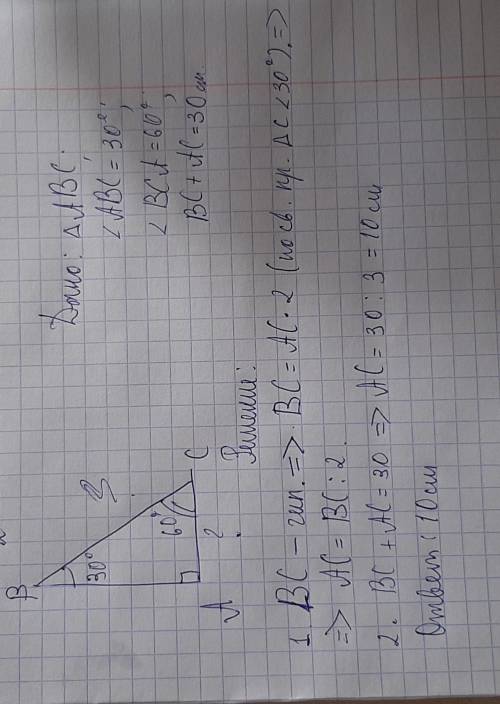 Дано: △ABC.
∠ABC = 30°;
∠BCA = 60°;
BC + AC = 30 см.
B
30°
?
60°
A
?
C
Решение:
1. BC – гип. => BC = AC · 2 (по св. пр. △ С ∠30°). =>
=> AC = BC : 2.
2. BC + AC = 30 => AC = 30 : 3 = 10 см
Ответ: 10 см